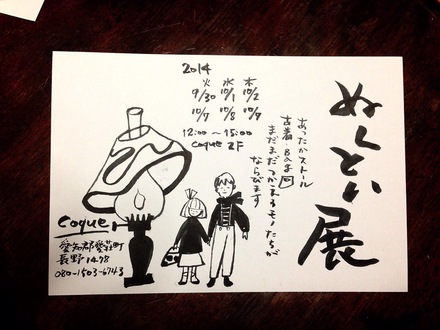 ぬくとい展
あったかストール
古着・日の菜回
まだまだつかえるモノたちが
ならびます
2014
火 水 木
9/30 10/1 10/2
10/7 10/8 10/9
12:00〜15:00
coque 2F
coque
愛知郡愛荘町
長野1478
080-1503-6743